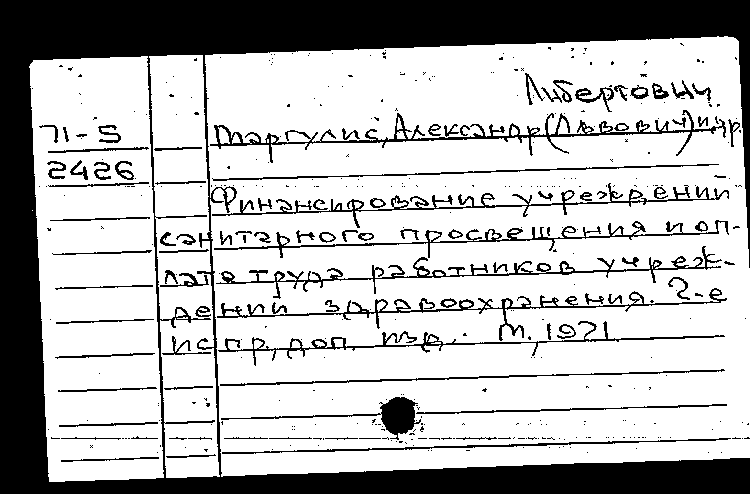 Либертович
71-5 Маргулис, Александр (Львович) и др.
2426
Финансирование учреждений
санитарного просвещения и оп-
лата труда работников учреж-
дений здравоохранения. 2-е
испр., доп. изд. М., 1971